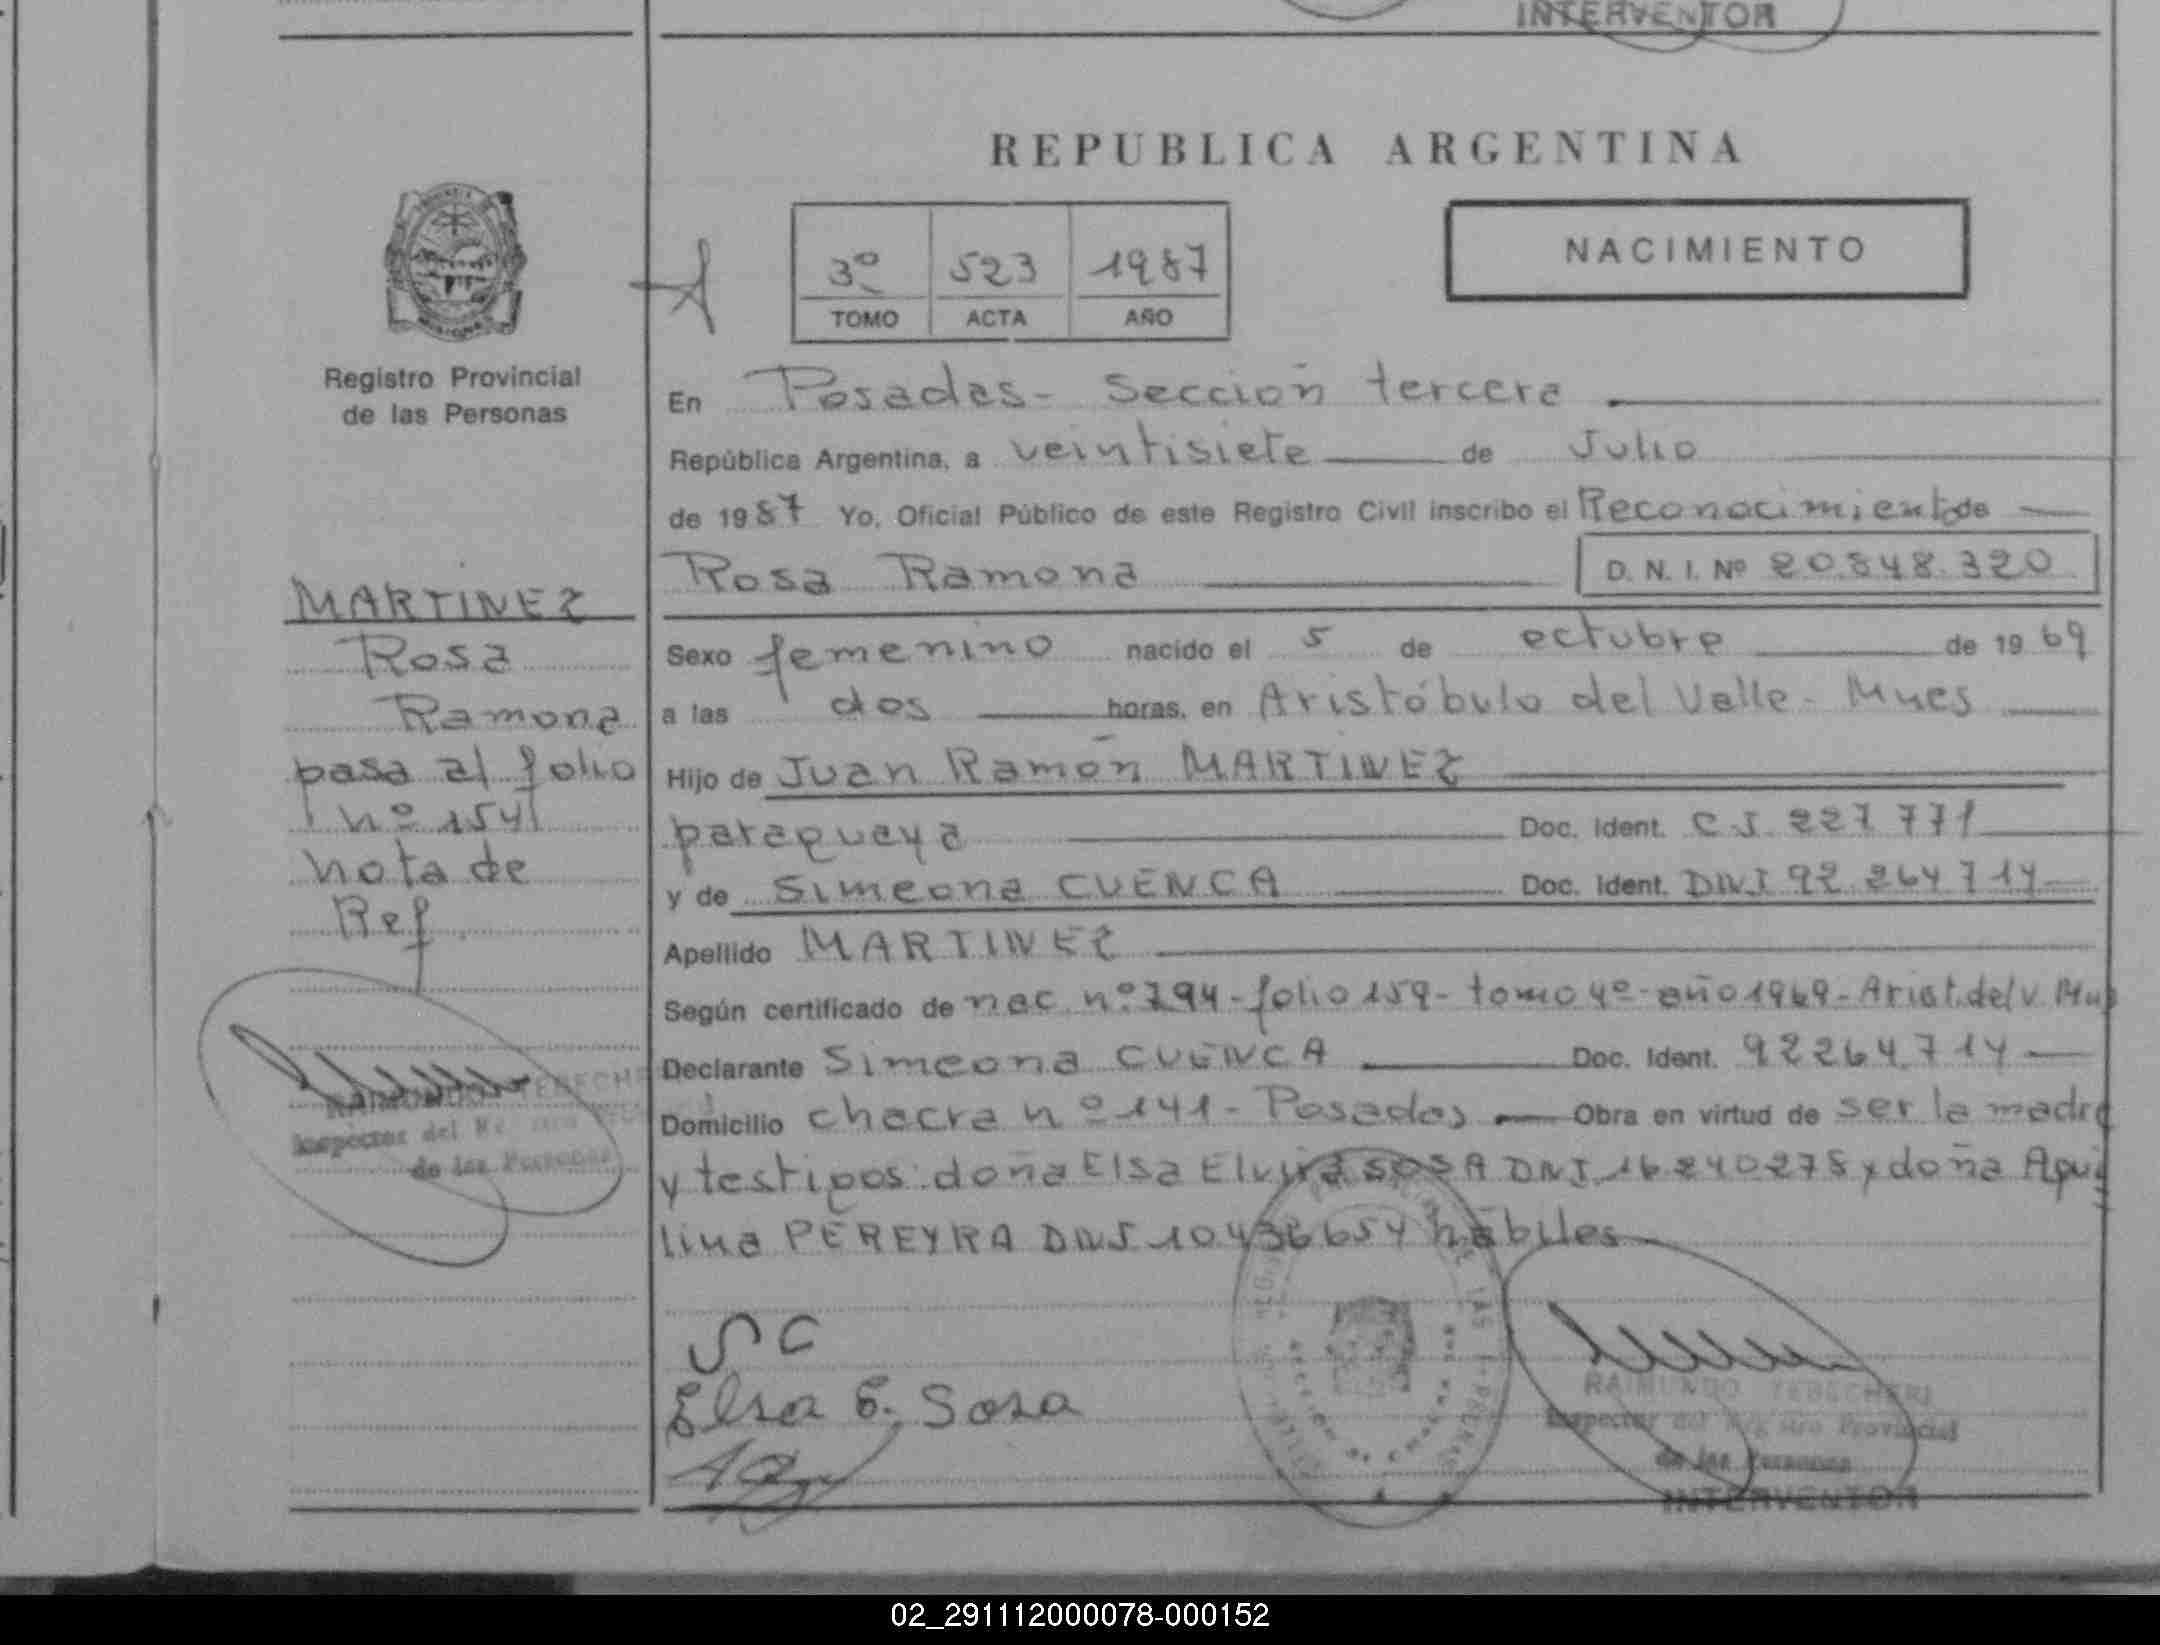 INTERVENTOR
REPUBLICA ARGENTINA
3º 523 1987
TOMO ACTA AÑO
NACIMIENTO
Registro Provincial
de las Personas
MARTINEZ
Rosa
Ramona
pasa al folio
nº 154
nota de
Ref.
Inspector del
de las Personas
En Posadas - Sección tercera
República Argentina, a veintisiete de Julio
de 1987 Yo, Oficial Público de este Registro Civil inscribo el Reconocimiento de
Rosa Ramona D. N. I. Nº 20.848.320
Sexo femenino nacido el 5 de octubre de 1969
a las dos horas, en Aristóbulo del Valle - Mnes
Hijo de Juan Ramón MARTINEZ
paraguaya Doc. Ident. C I 227 771
y de Simeona CUENCA Doc. Ident. DNI 92 264 714
Apellido MARTINEZ
Según certificado de nac nº 794 - folio 159 - tomo 4º - año 1969 - Arist. del V. Mns
Declarante Simeona CUENCA Doc. Ident. 92264714
Domicilio chacra nº 141 - Posadas Obra en virtud de ser la madre
y testigos: doña Elsa Elvira SOSA DNI 16240278 y doña Aqui
lina PEREYRA DNI 10436654 hábiles
S C
Elsa E. Sosa
RAIMUNDO TEBECHERI
Inspector del Registro Provincial
de las Personas
INTERVENTOR
02_291112000078-000152